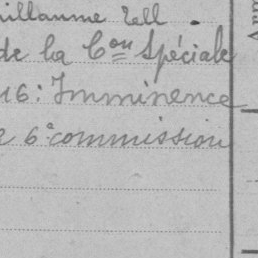 uillaume Tell.
de la Con Spéciale
16: Imminence
e 6e commission